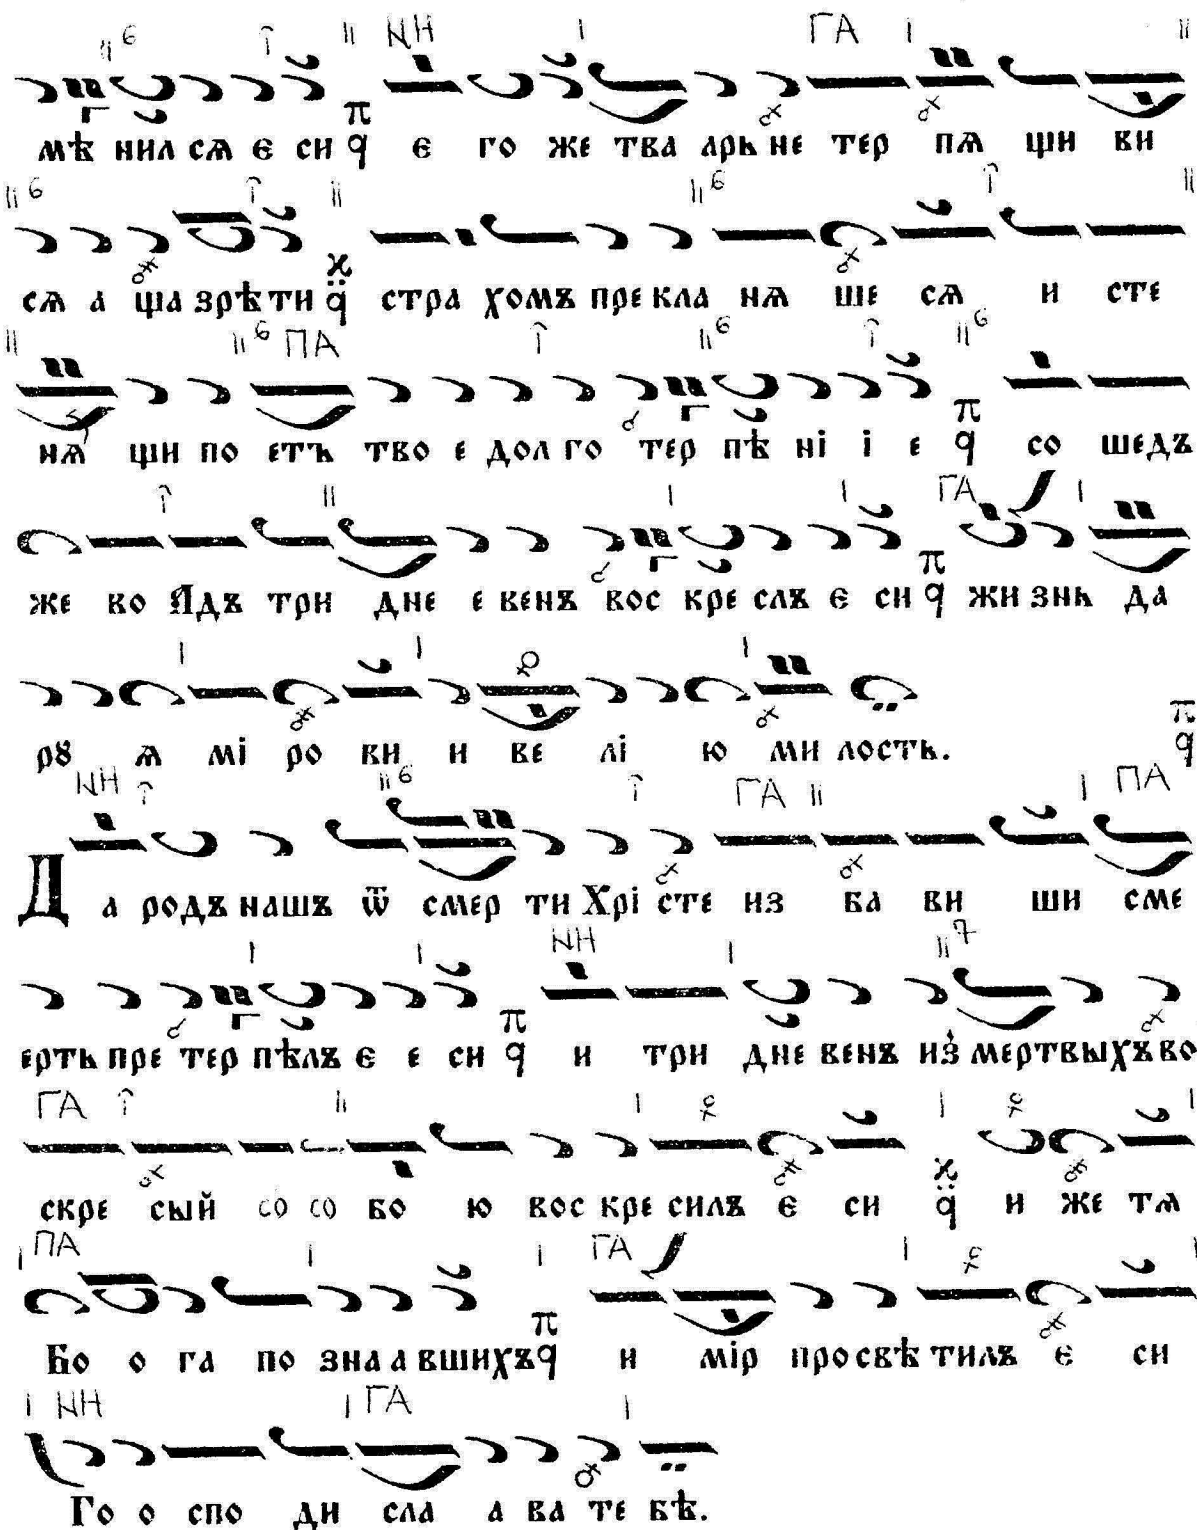 мѣ нил сѧ є си є го же тва арь не тер пѧ щи ви
сѧ а ща зрѣ ти стра хомъ пре кла нѧ ше сѧ и сте
нѧ щи по етъ тво е дол го тер пѣ ні і е со шедъ
же во Адъ три дне е венъ вос кре слъ є си жи знь да
рꙋ ѧ мі ро ви и ве лі ю ми лость.
Д а родъ нашъ ѿ смер ти Хрі сте из ба ви ши сме
ерть пре тер пѣлъ є е си и три дне венъ из мертвыхъ во
скре сый со со бо ю вос кре силъ є си и же тѧ
Бо о га по зна а вшихъ и мір про свѣ тилъ є си
Го о спо ди сла а ва те бѣ.